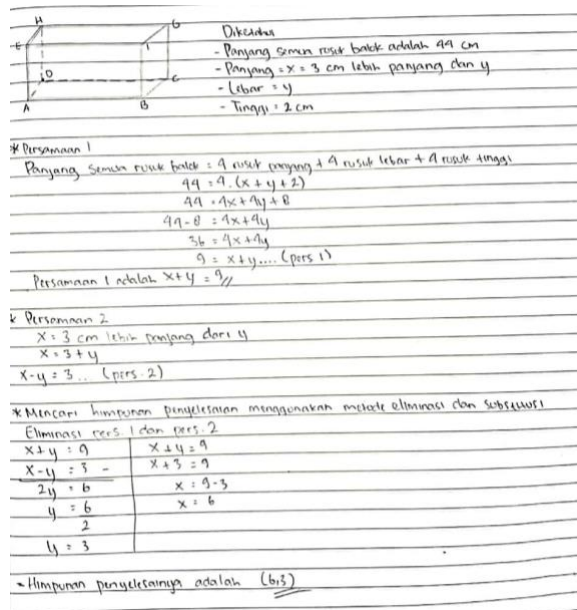 H G
E F
D C
A B
Diketahui
- Panjang semua rusuk balok adalah 44 cm
- Panjang = x = 3 cm lebih panjang dari y
- Lebar = y
- Tinggi = 2 cm
* Persamaan 1
Panjang semua rusuk balok = 4 rusuk panjang + 4 rusuk lebar + 4 rusuk tinggi
44 = 4.(x + y + 2)
44 = 4x + 4y + 8
44 - 8 = 4x + 4y
36 = 4x + 4y
9 = x + y .... (pers 1)
Persamaan 1 adalah x + y = 9 //
* Persamaan 2
x = 3 cm lebih panjang dari y
x = 3 + y
x - y = 3 .. (pers. 2)
* Mencari himpunan penyelesaian menggunakan metode eliminasi dan substitusi
Eliminasi pers. 1 dan pers. 2
x + y = 9
x - y = 3 -
2y = 6
y = 6
2
y = 3
x + y = 9
x + 3 = 9
x = 9 - 3
x = 6
- Himpunan penyelesainya adalah (6,3)